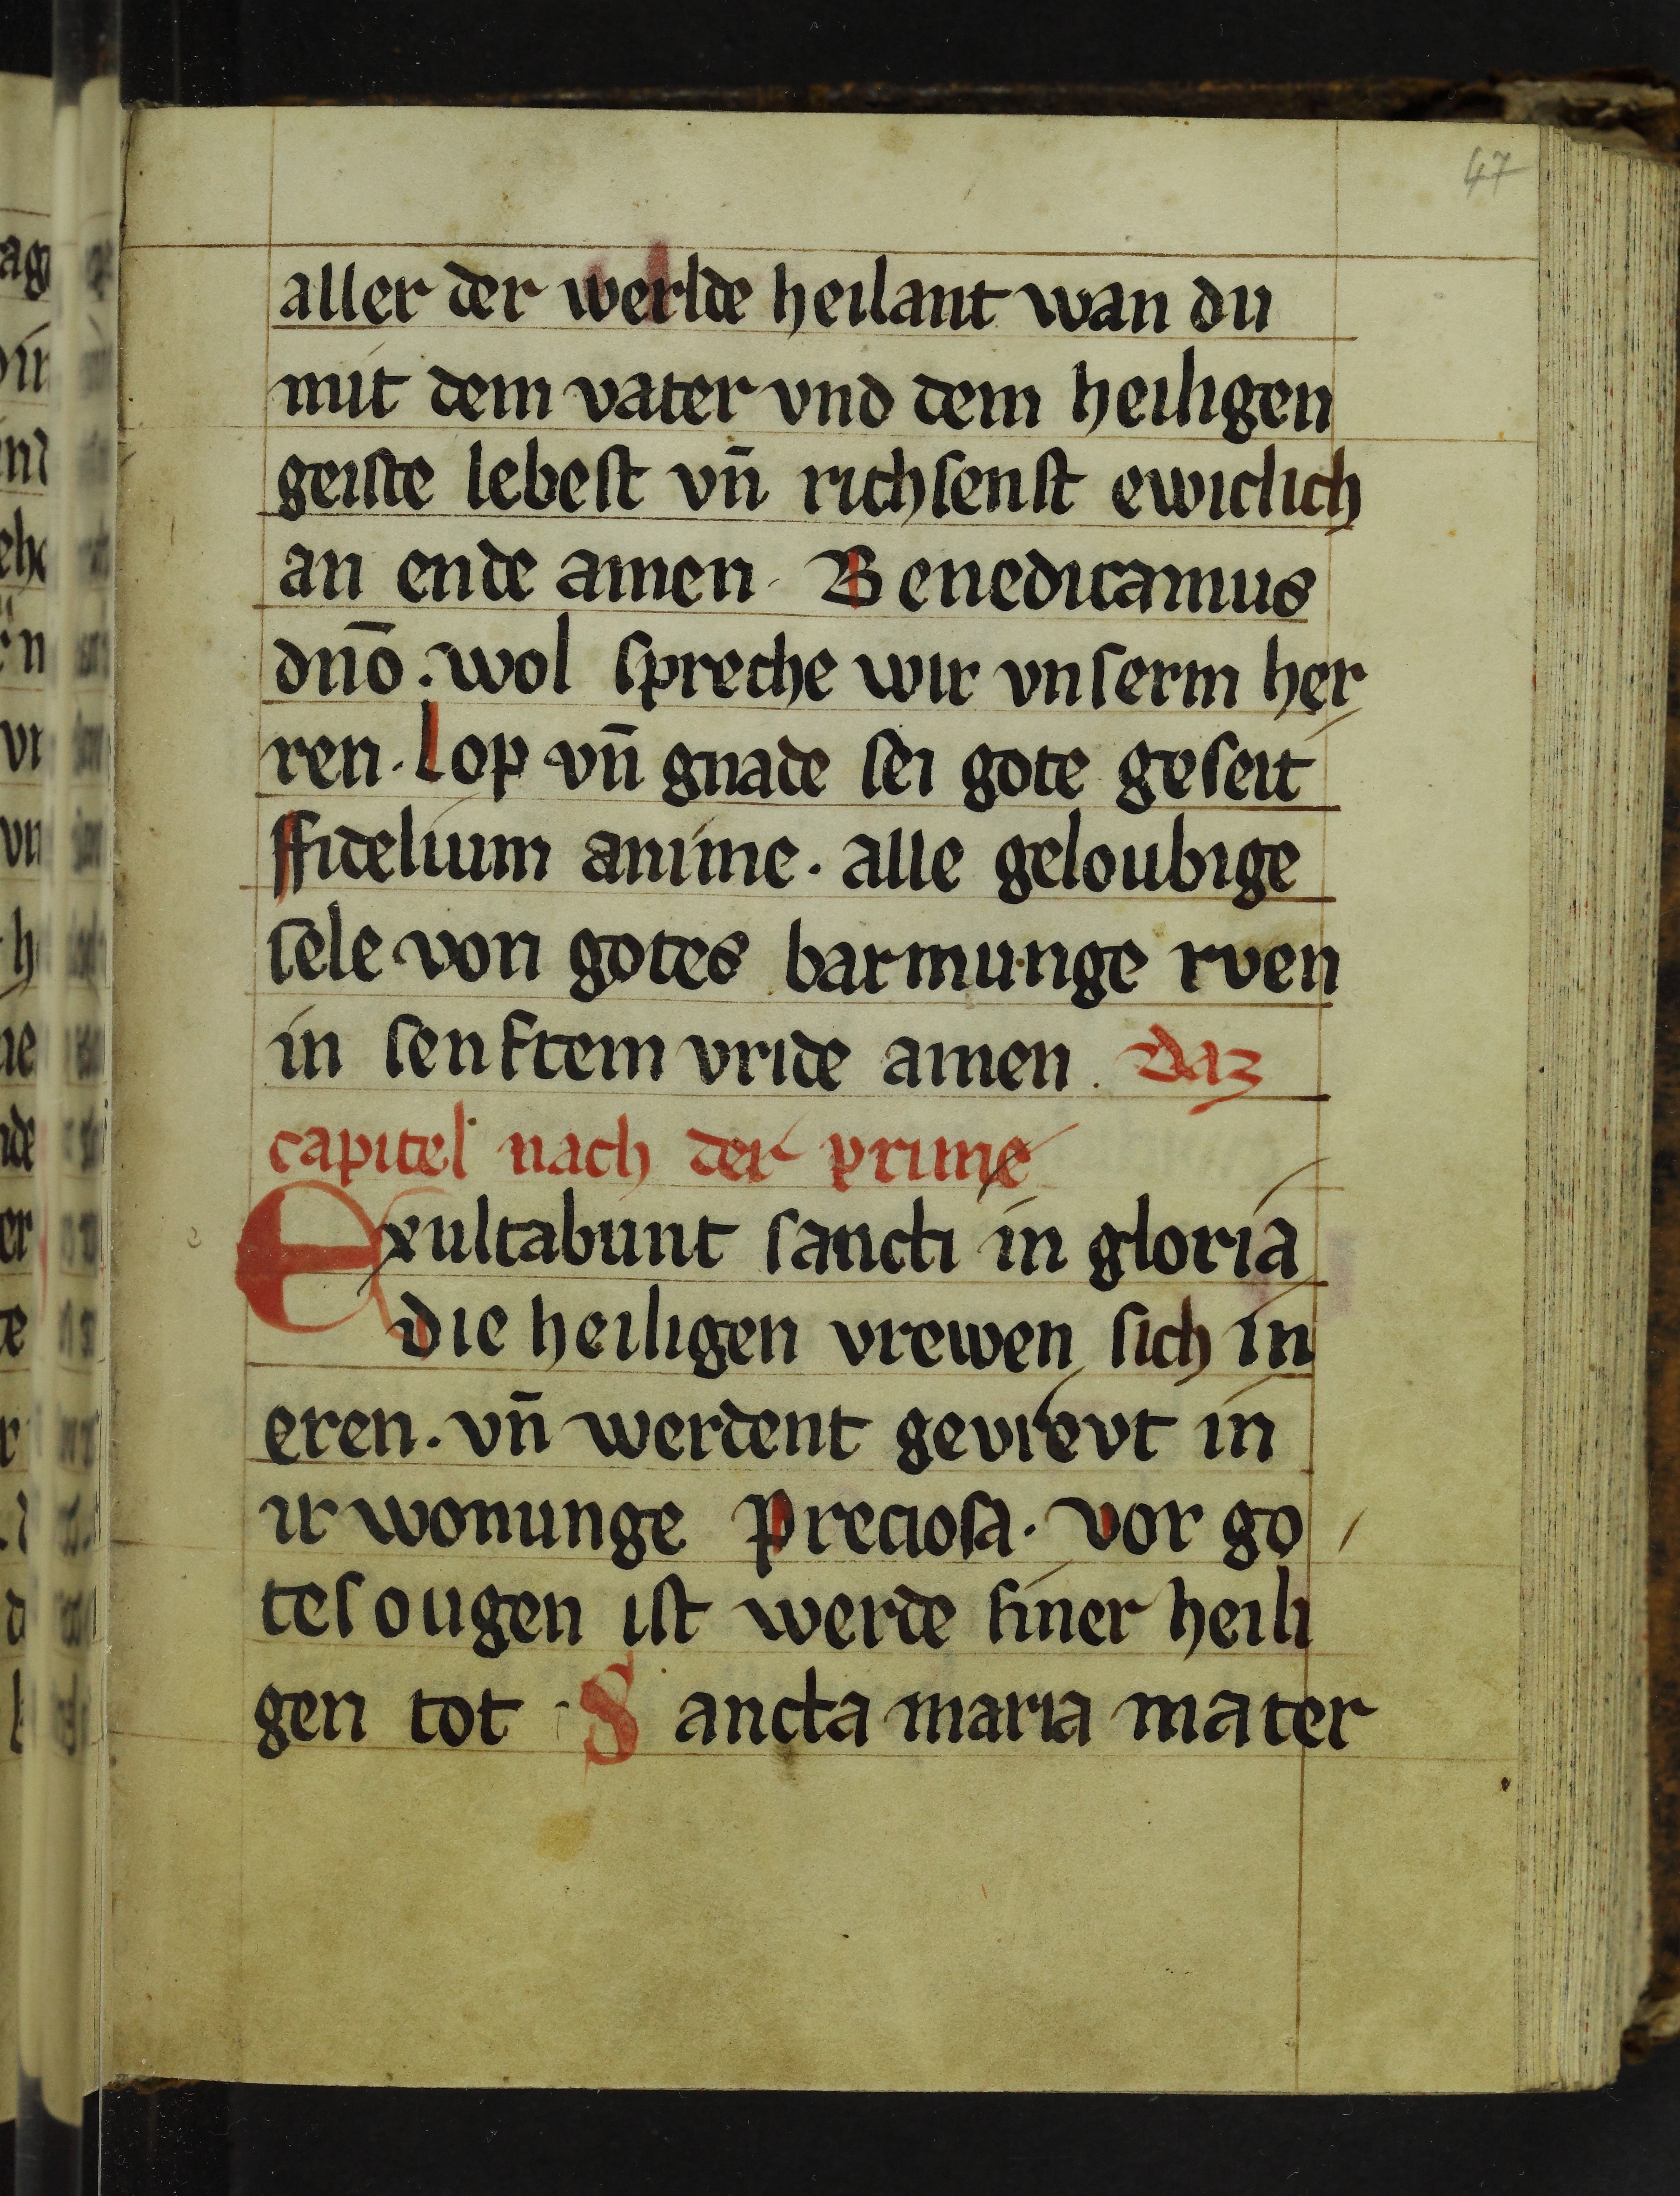 47
aller der werlde heilant wan du
mit dem vater vnd dem heiligen
geiste lebest vn̄ richsenst ewiclich
an ende amen · Benedicamus
dn̄o . wol spreche wir vnserm her
ren · lop vn̄ gnade sei gote geseit
ffidelium anime · alle geloubige
sele von gotes barmunge rven
in senftem vride amen . daz
capitel nach der prime
Exultabunt sancti in gloria
die heiligen vrewen sich in
eren · vn̄ werdent gevrevt in
ir wonunge Preciosa · vor go
tes ougen ist werde siner heili
gen tot · Sancta maria mater